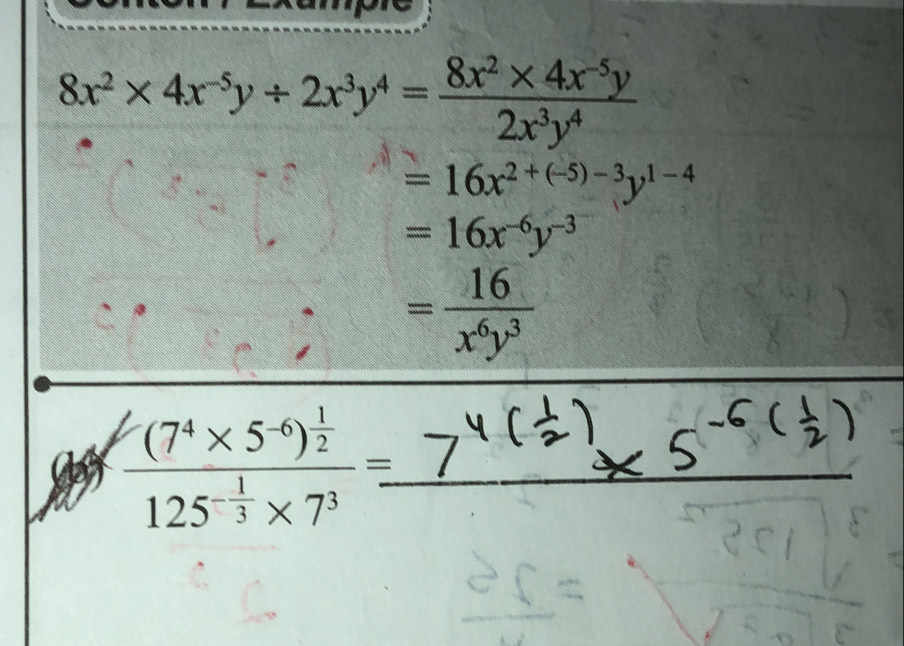 Contoh / Example
8x² × 4x⁻⁵y ÷ 2x³y⁴ = (8x² × 4x⁻⁵y)/(2x³y⁴)
= 16x²⁺⁽⁻⁵⁾⁻³y¹⁻⁴
= 16x⁻⁶y⁻³
= 16/(x⁶y³)
(7⁴ × 5⁻⁶)^(1/2) / (125^(-1/3) × 7³) = 7^(4(1/2)) × 5^(-6(1/2))